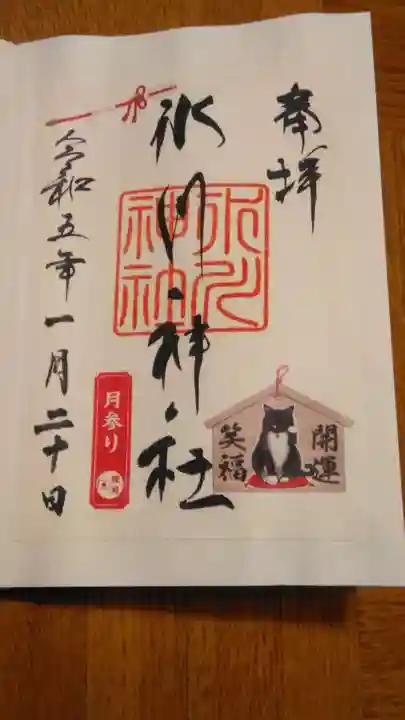 奉拝
氷川神社
氷川神社
開運
笑福
月参り
令和五年一月二十日